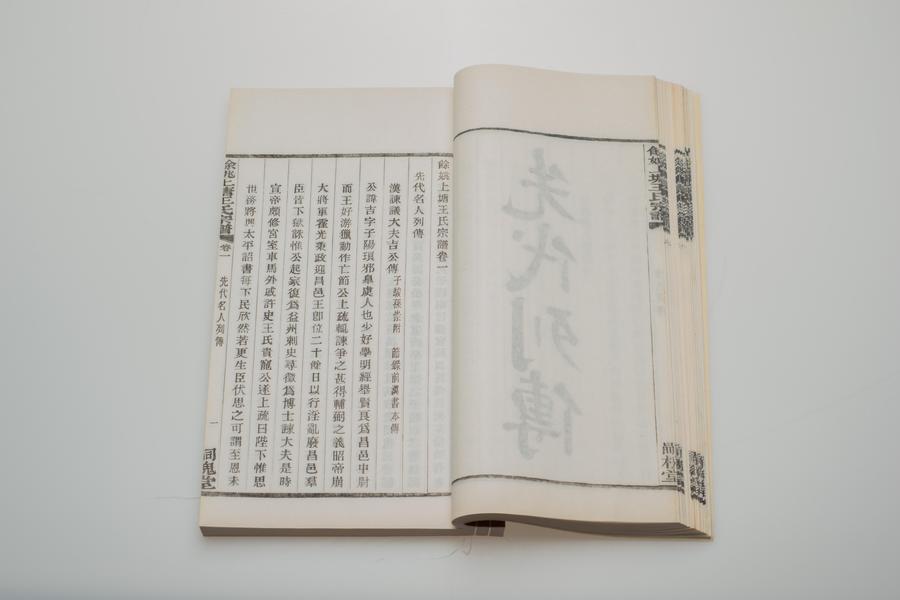 餘姚上塘王氏宗譜卷一
先代名人列傳
漢諫議大夫吉公傳子駿孫崇附 節錄前漢書本傳
公諱吉字子陽琅邪皋虞人也少好學明經舉賢良為昌邑中尉
而王好游獵動作亡節公上疏輒諫爭之甚得輔弼之義昭帝崩
大將軍霍光秉政迎昌邑王即位二十餘日以行淫亂廢昌邑羣
臣皆下獄誅惟公起家復為益州刺史尋徵為博士諫大夫是時
宣帝頗修宮室車馬外戚許史王氏貴寵公遂上疏曰陛下惟思
世務將興太平詔書每下民欣然若更生臣伏思之可謂至恩未
餘姚上塘王氏宗譜 卷一 先代名人列傳 一 同槐堂
先代列傳